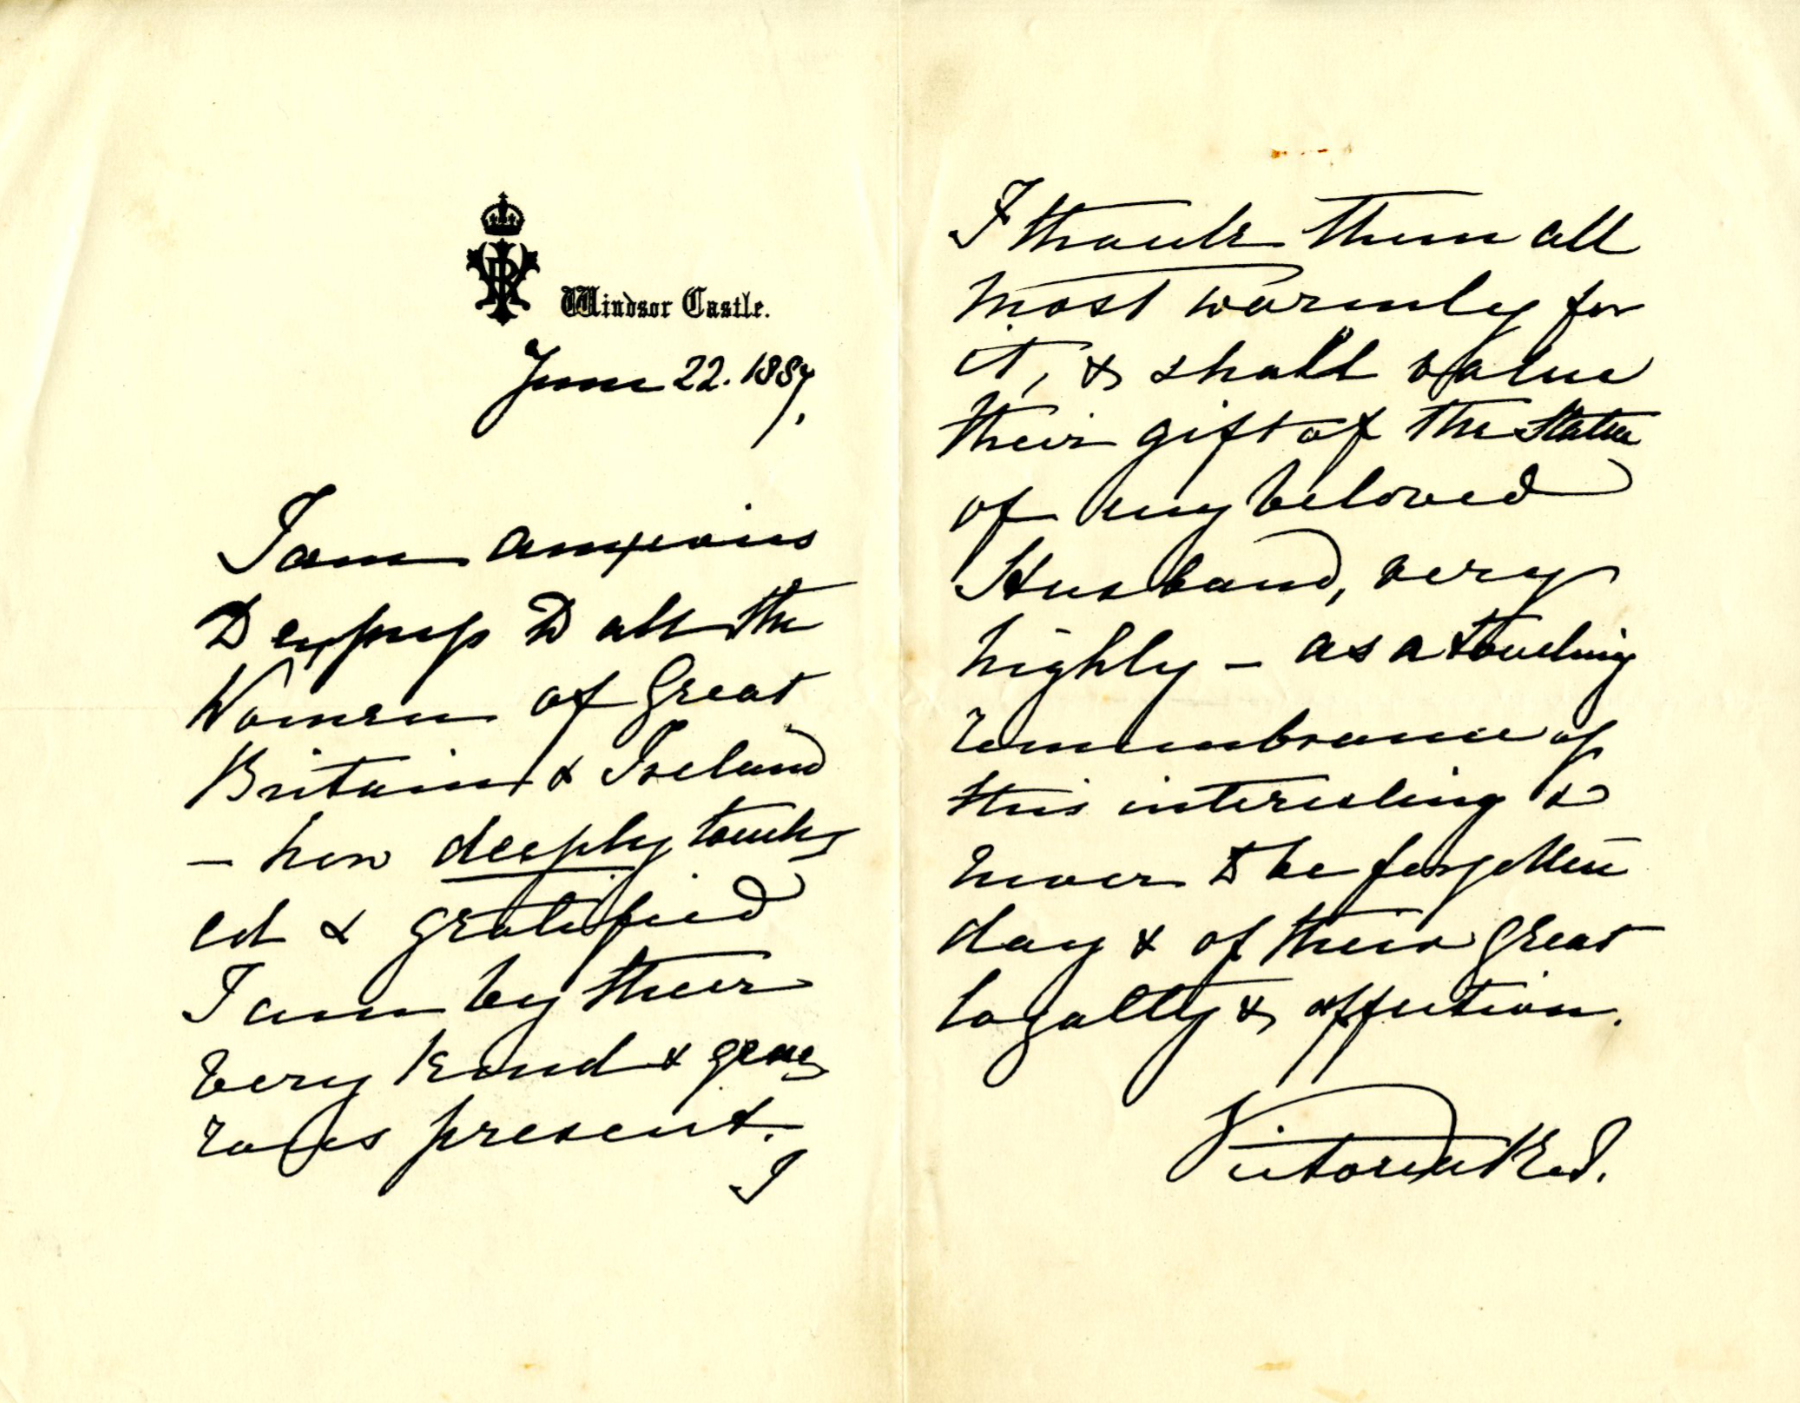 VRI
Windsor Castle.
June 22. 1887.
I am anxious
to express to all the
Women of Great
Britain & Ireland
– how deeply touch-
ed & gratified
I am by their
very kind & gene-
rous present.
I
I thank them all
most warmly for
it, & shall value
their gift of the Statue
of my beloved
Husband, very
highly – as a touching
remembrance of
this interesting &
never to be forgotten
day & of their great
loyalty & affection.
Victoria R&I.